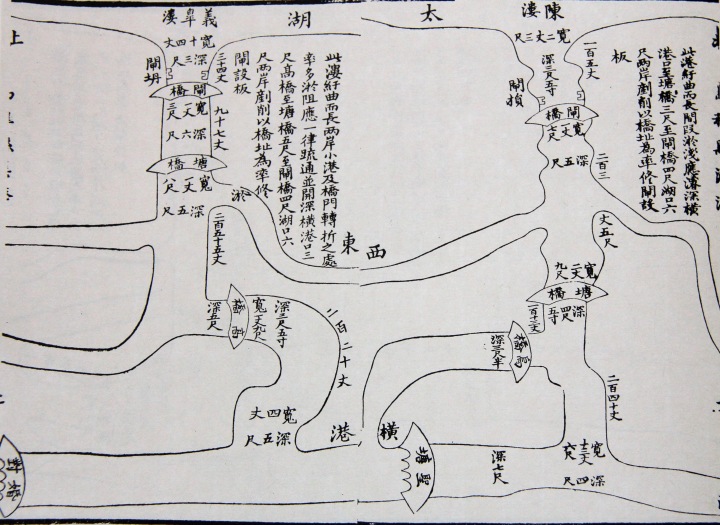 太湖
陳漊
寬二丈三尺
深三尺五寸
一百五丈
閘損
閘橋
寬一丈七尺
深五尺
二百三
此漊紆曲而長間段淤淺應濬深橫
港口至塘橋三尺至閘橋四尺湖口六
尺兩岸剷削以橋址為率修閘設
板
丈五尺
寬二丈九尺
塘橋
深四尺五寸
一百十二丈
深三尺半
二百四十丈
深四尺
深七尺
聖塘
橫港
西東
義皐漊
寬十四丈
深三尺
三十四丈
閘坍
閘橋
寬一丈三尺
深六尺
九十七丈
塘橋
寬一丈八尺
深五尺
淤
此漊紆曲而長兩岸小港及橋門轉折之處
率多淤阻應一律疏通並開深橫港口三
尺高橋至塘橋五尺至閘橋四尺湖口六
尺兩岸剷削以橋址為率修
閘設板
二百五十五丈
深五尺
深三尺五寸
二百二十丈
寬四丈
深五尺
上